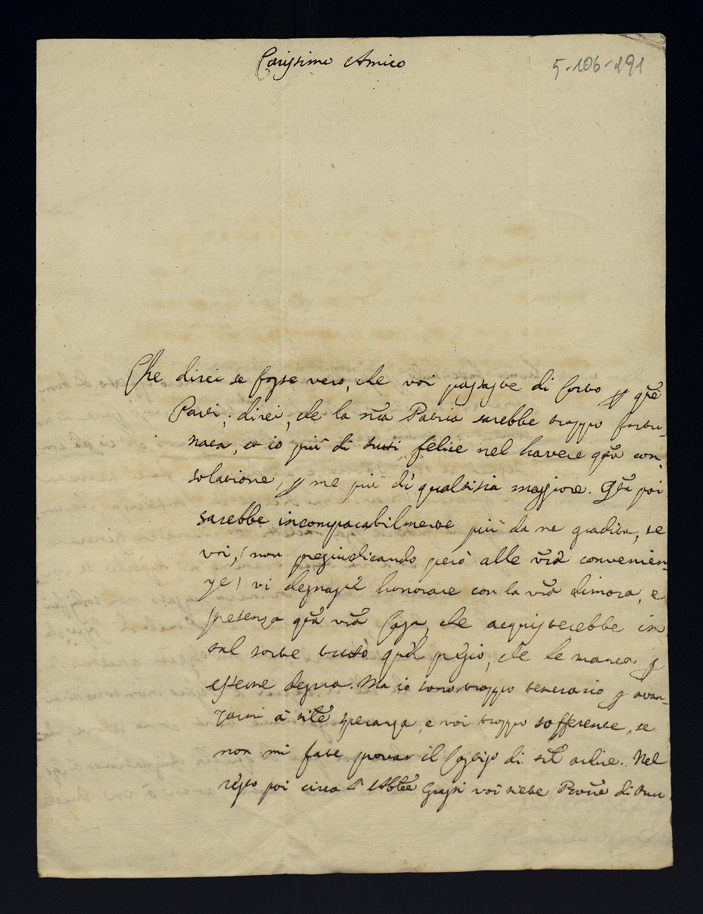 Carissimo Amico
5-106-191
Che direi se fosse vero, che voi passaste di costo p q̃ste
Parti; direi, che la nr̃a Patria sarebbe troppo fortu-
nata, et io più di tutti felice nel havere q̃sta con-
solatione, p me più di qualsisia maggiore. Q̃sta poi
sarebbe incomparabilmente più da me gradita, se
voi, (non pregiudicando però alle vr̃e convenien-
ze) vi degnaste honorare con la vr̃a dimora, e
presenza q̃sta vr̃a Casa, che acquisterebbe in
tal sorte tutto quel pregio, che le manca p
esserne degna. Ma io sono troppo temerario p avan-
zarmi à sile speranza, e voi troppo sofferente, se
non mi fate provar il castigo di sil ardire. Nel
resto poi circa l'Abbe voi siete Prone di